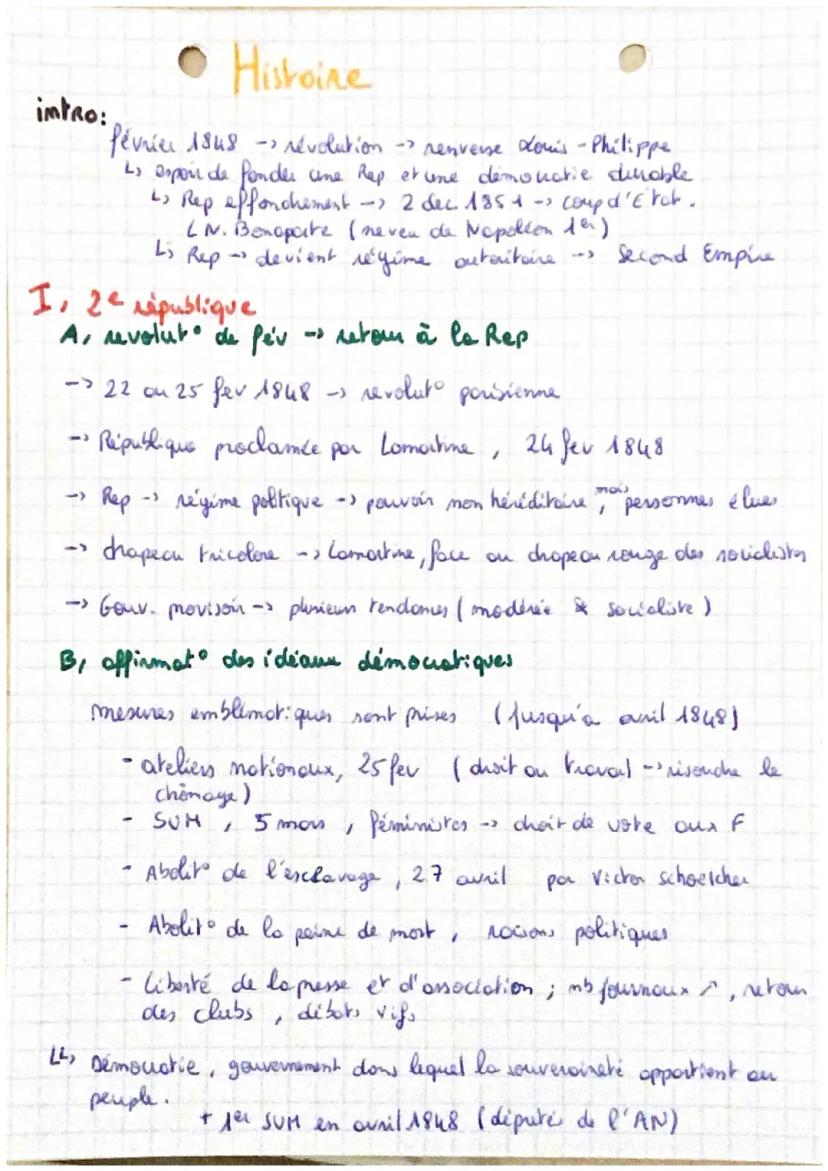 Histoire
intro:
février 1848 -> révolution -> renverse Louis-Philippe
↳ espoir de fonder une Rep et une démocratie durable
↳ Rep effondrement -> 2 dec 1851 -> coup d'Etat.
LN. Bonaparte (neveu de Napoléon 1er)
↳ Rep -> devient régime autoritaire -> Second Empire
I, 2e république
A, revolut° de fév -> retour à la Rep
-> 22 au 25 fev 1848 -> revolut° parisienne
-> République proclamée par Lamartine, 24 fev 1848
-> Rep -> régime politique -> pouvoir non héréditaire, mais personnes élues
-> drapeau tricolore -> Lamartine, face au drapeau rouge des socialistes
-> Gouv. provisoir -> plusieurs tendances (modérée & socialiste)
B, affirmat° des idéaux démocratiques
mesures emblématiques sont prises (jusqu'a avril 1848)
- ateliers nationaux, 25 fev (droit au travail -> résoudre le
chômage)
- SUM, 5 mars, féministes -> droit de vote aux F
- Abolit° de l'esclavage, 27 avril par Victor Schoelcher
- Abolit° de la peine de mort, raisons politiques
- Liberté de la presse et d'association ; nb journaux ↗, retour
des clubs, débats vifs
↳ Démocratie, gouvernement dans lequel la souveraineté appartient au
peuple.
+ 1er SUM en avril 1848 (députés de l'AN)